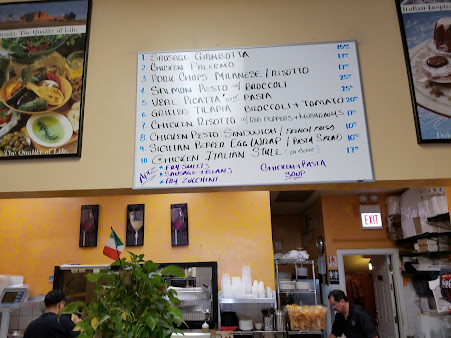 The Quality of Life.
The Quality of Life.
Italian Inspired
1. SAUSAGE GIAMBOTTA 15.95
2. CHICKEN PALERMO 17
3. PORK CHOPS MILANESE / RISOTTO 17
4. SALMON PESTO W/ BROCCOLI 25
5. VEAL PICATTA PASTA 25
6. GRILLED TILAPIA BROCCOLI + TOMATO 20
7. CHICKEN RISOTTO W/ RED PEPPERS + MUSHROOMS 17
8. CHICKEN PESTO SANDWICH / FRENCH FRIES 10
9. SICILIAN PEPPER EGG WRAP / PASTA SALAD 10
10. CHICKEN ITALIAN STYLE (ON BONE) 17
ALSO * FRY SMELTS
* SAUSAGE + BEANS
* FRY ZUCCHINI
CHICKEN + PASTA
SOUP
EXIT